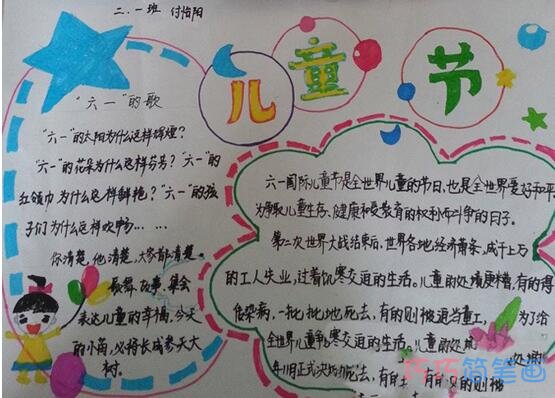 二.一班 付怡阳
儿童节
“六一”的歌
“六一”的太阳为什么这样辉煌?
“六一”的花朵为什么这样芬芳? “六一”的
红领巾为什么这样鲜艳? “六一”的孩
子们为什么这样欢畅……
你清楚,他清楚,大家都清楚。
歌舞、故事、集会
表达儿童的幸福,今天
的小苗,必将长成参天大
树。
六一国际儿童节是全世界儿童的节日,也是全世界爱好和平
为争取儿童生存、健康和受教育的权利而斗争的日子。
第二次世界大战结束后,世界各地经济萧条,成千上万
的工人失业,过着饥寒交迫的生活。儿童的处境更糟,有的得
传染病,一批批地死去,有的则被迫当童工,
为了给
全世界
寒交迫的生活。儿童的处
处境
死去,有的
有的则被
巧巧简笔画